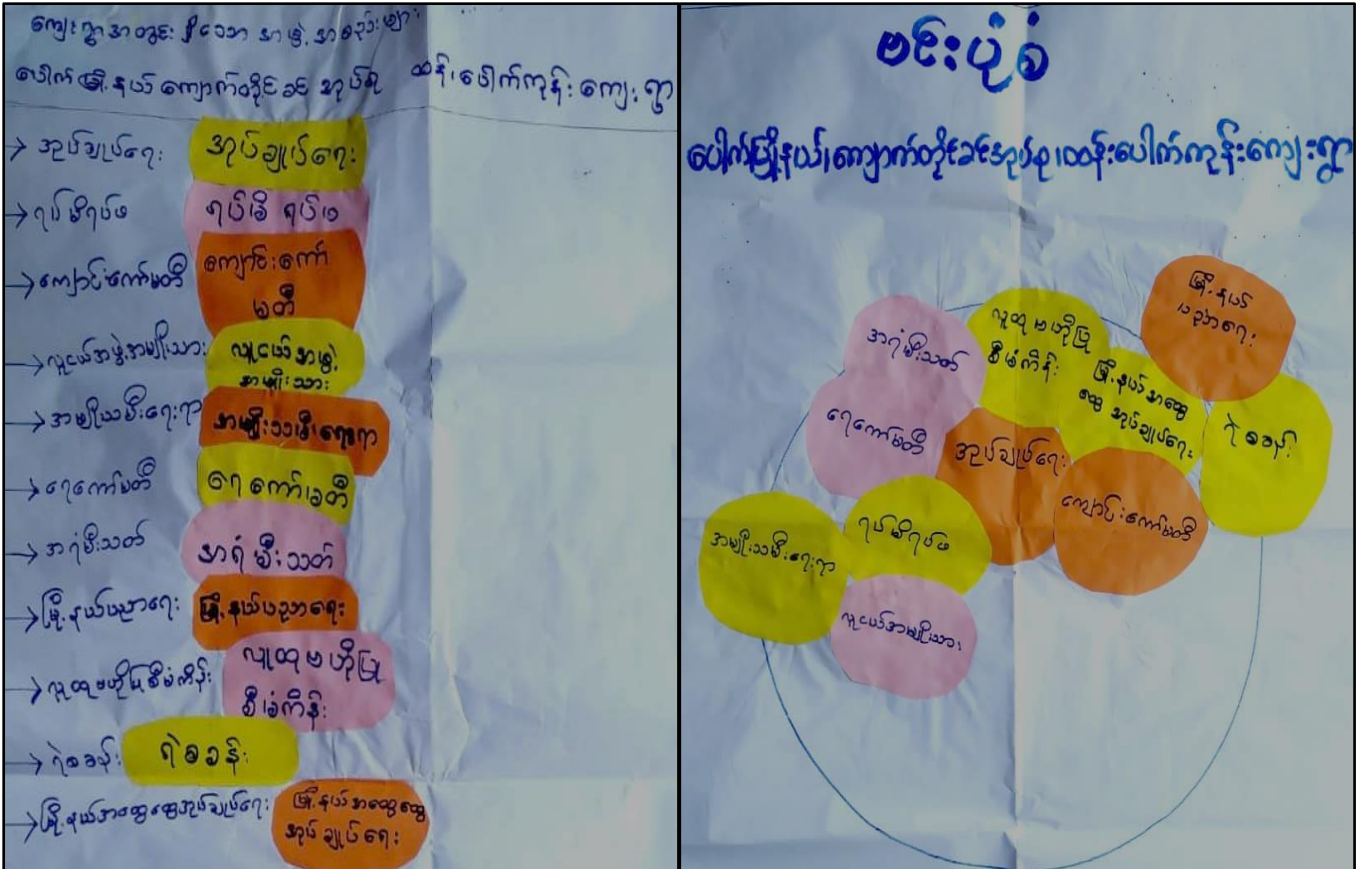 ကျေးရွာအတွင်း ရှိသော အဖွဲ့အစည်းများ
ပေါက်မြို့နယ် ကျောက်တိုင်ခင် အုပ်စု ထန်းပေါက်ကုန်း ကျေးရွာ
→ အုပ်ချုပ်ရေး အုပ်ချုပ်ရေး
→ ရပ်မိရပ်ဖ ရပ်မိ ရပ်ဖ
→ ကျောင်းကော်မတီ ကျောင်းကော်
မတီ
→ လူငယ်အဖွဲ့အမျိုးသား လူငယ်အဖွဲ့
အမျိုးသား
→ အမျိုးသမီးရေးရာ အမျိုးသမီးရေးရာ
→ ရေကော်မတီ ရေကော်မတီ
→ အရံမီးသတ် အရံမီးသတ်
→ မြို့နယ်ပညာရေး မြို့နယ်ပညာရေး
→ လူထုဗဟိုပြုစီမံကိန်း လူထုဗဟိုပြု
စီမံကိန်း
→ ရဲစခန်း ရဲစခန်း
→ မြို့နယ်အထွေထွေအုပ်ချုပ်ရေး မြို့နယ်အထွေထွေ
အုပ်ချုပ်ရေး
ဗင်းပုံစံ
ပေါက်မြို့နယ်၊ ကျောက်တိုင်ခင်အုပ်စု၊ ထန်းပေါက်ကုန်းကျေးရွာ
မြို့နယ်
ပညာရေး
အရံမီးသတ်
လူထုဗဟိုပြု
စီမံကိန်း
မြို့နယ်အထွေ
ထွေ အုပ်ချုပ်ရေး
ရဲစခန်း
ရေကော်မတီ
အုပ်ချုပ်ရေး
ကျောင်းကော်မတီ
အမျိုးသမီးရေးရာ
ရပ်မိရပ်ဖ
လူငယ်အမျိုးသား